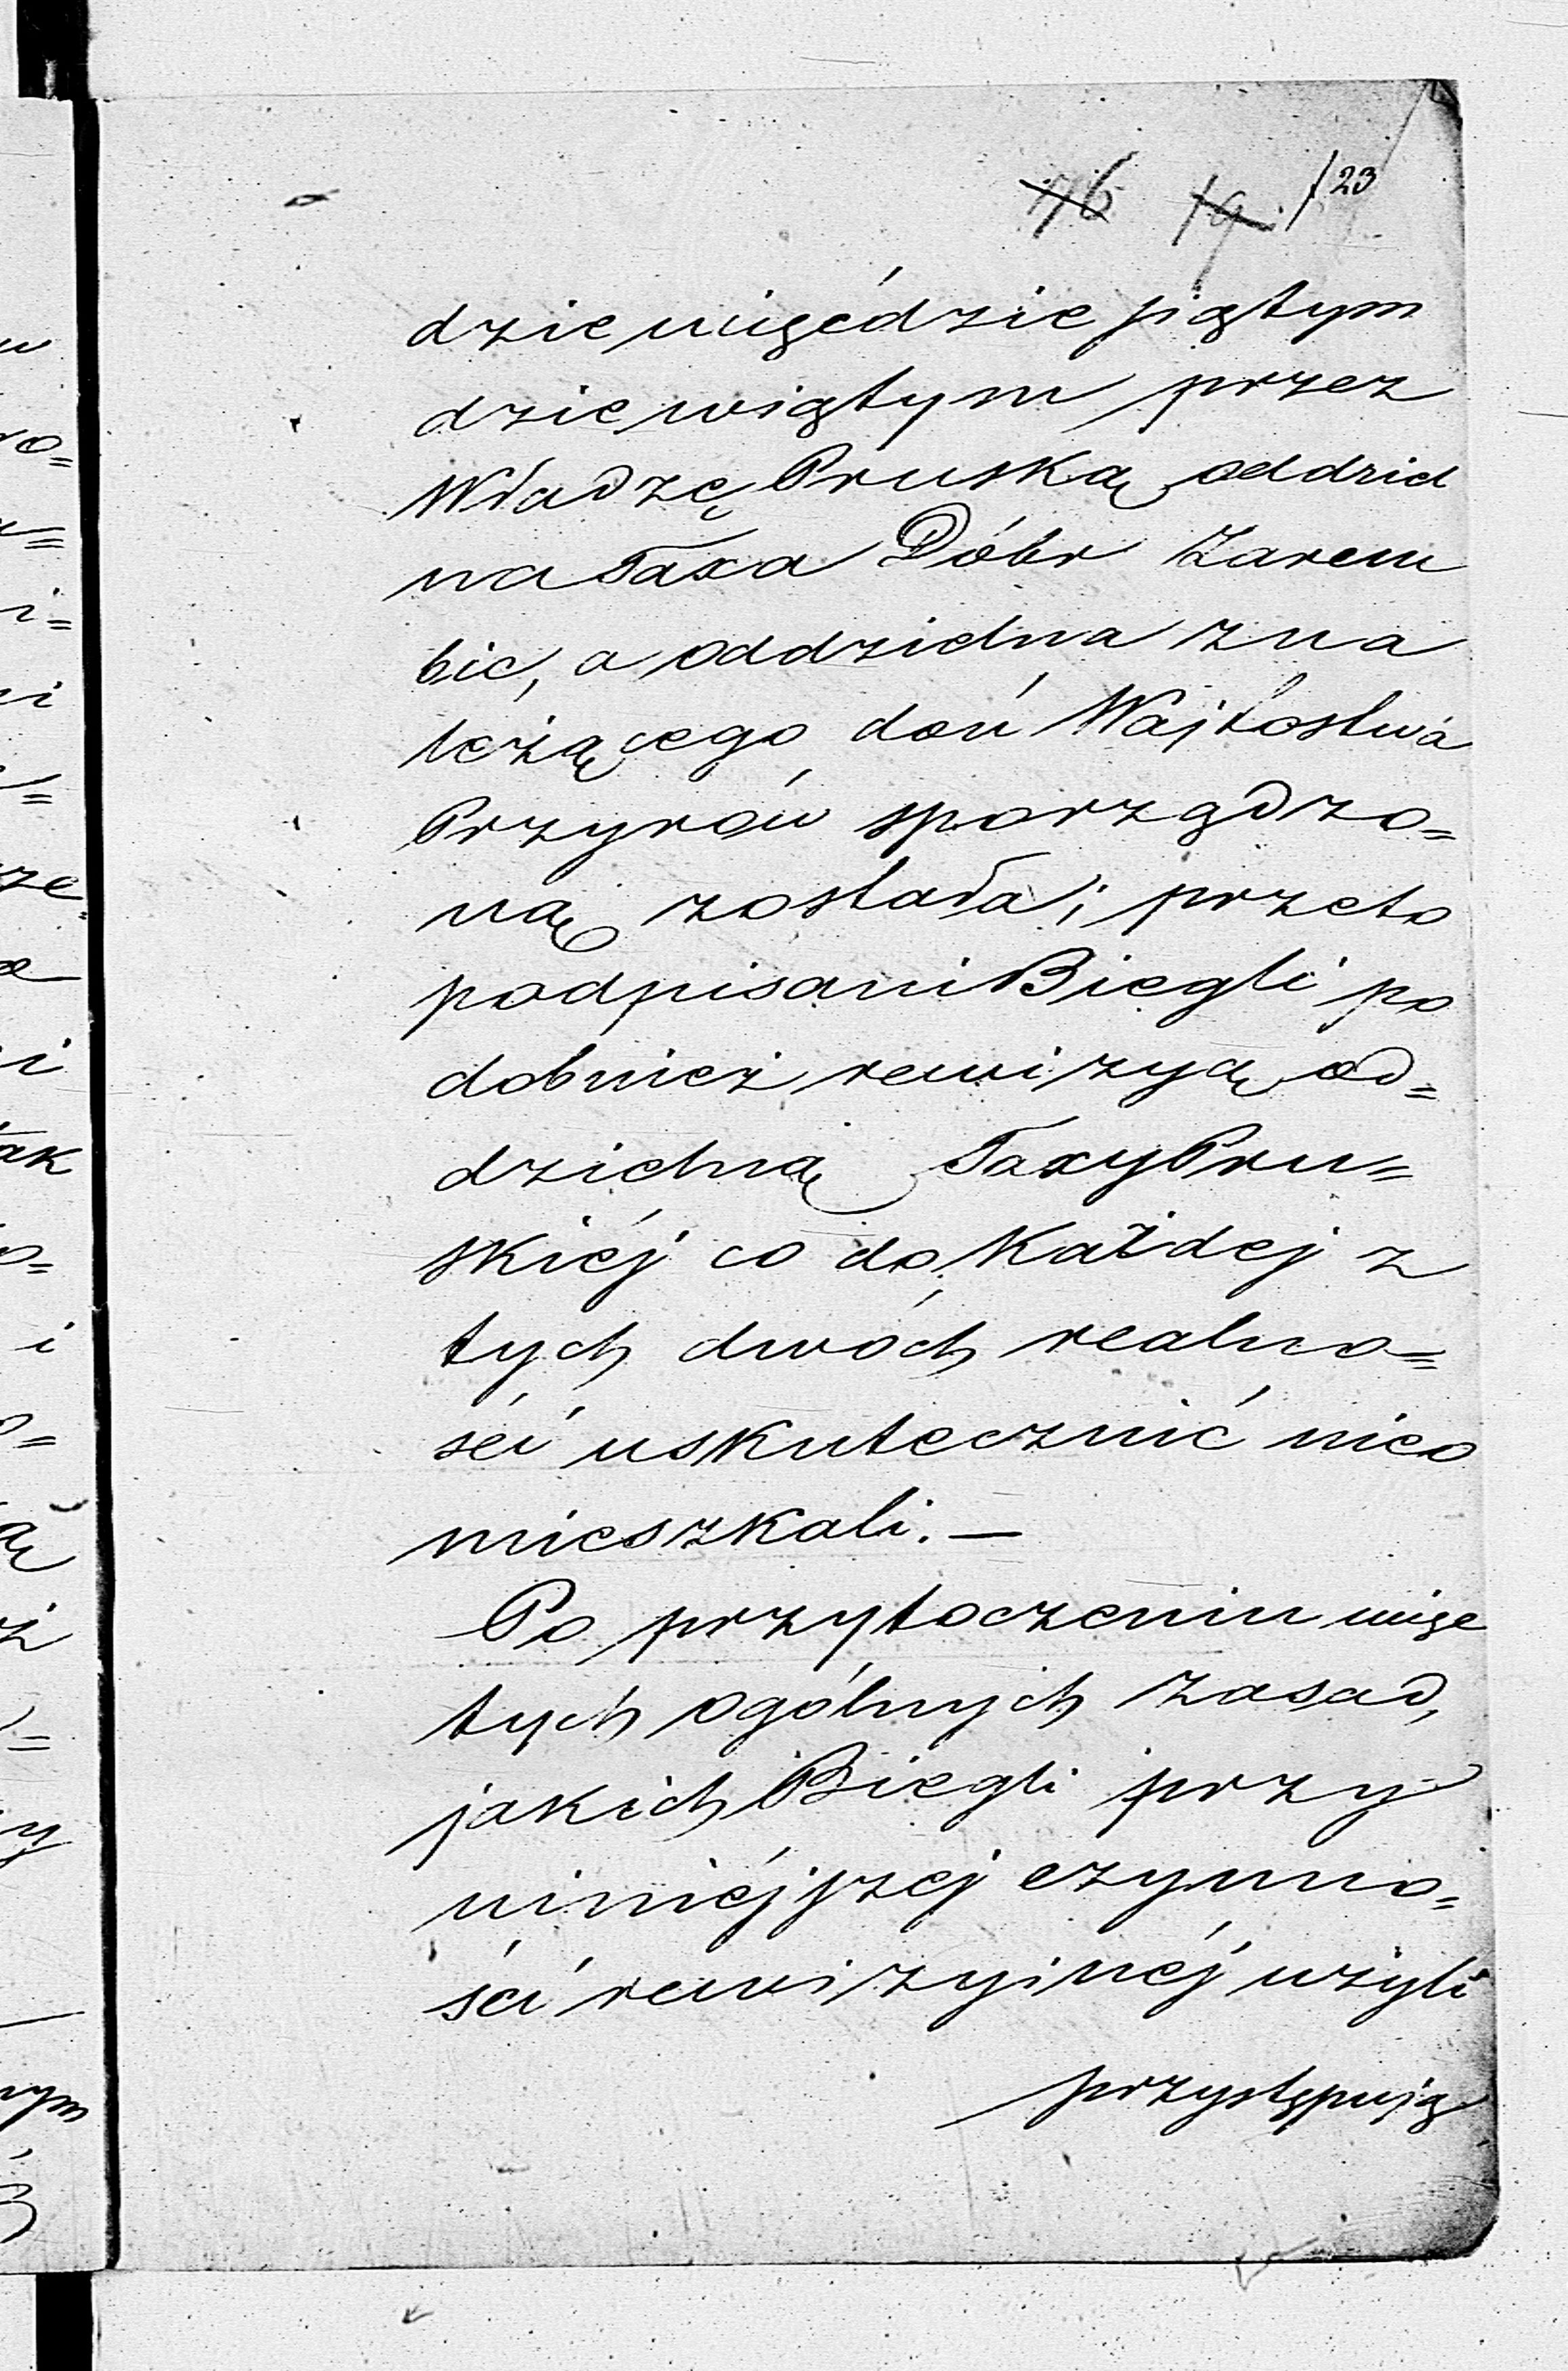 23
dziewięćdziesiątym
dziewiątym przez
Władzę Pruską oddziel
na Taxa Dóbr Zarem
bic, a oddzielna zna
leżącego doń Wójtostwa
Przyrów sporządzo=
ną została; przeto
podpisani Biegli po
dobnież rewizyą od=
dzielną Taxy Pru=
skiéj co do każdej z
tych dwóch realno=
ści uskutecznić nieo
mieszkali. —
Po przytoczeniu więc
tych ogólnych zasad,
jakich Biegli przy
niniéjszej czynno=
ści rewizyinéj użyli
przystępują